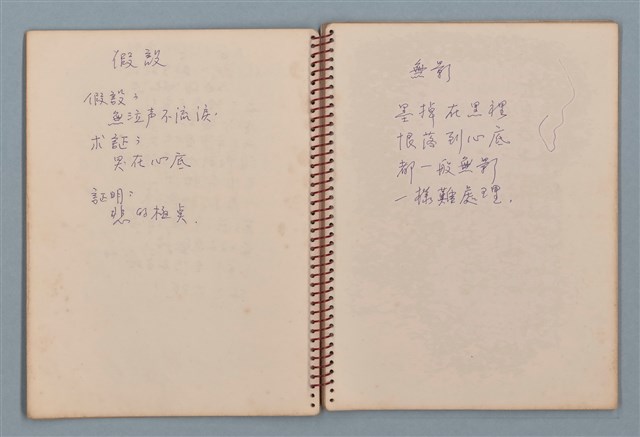 假設
假設：
無泣声不流淚.
求証：
哭在心底
証明：
悲的極貞.
無影
墨掉在黑裡
恨落到心底
都一般無影
一樣難處理.